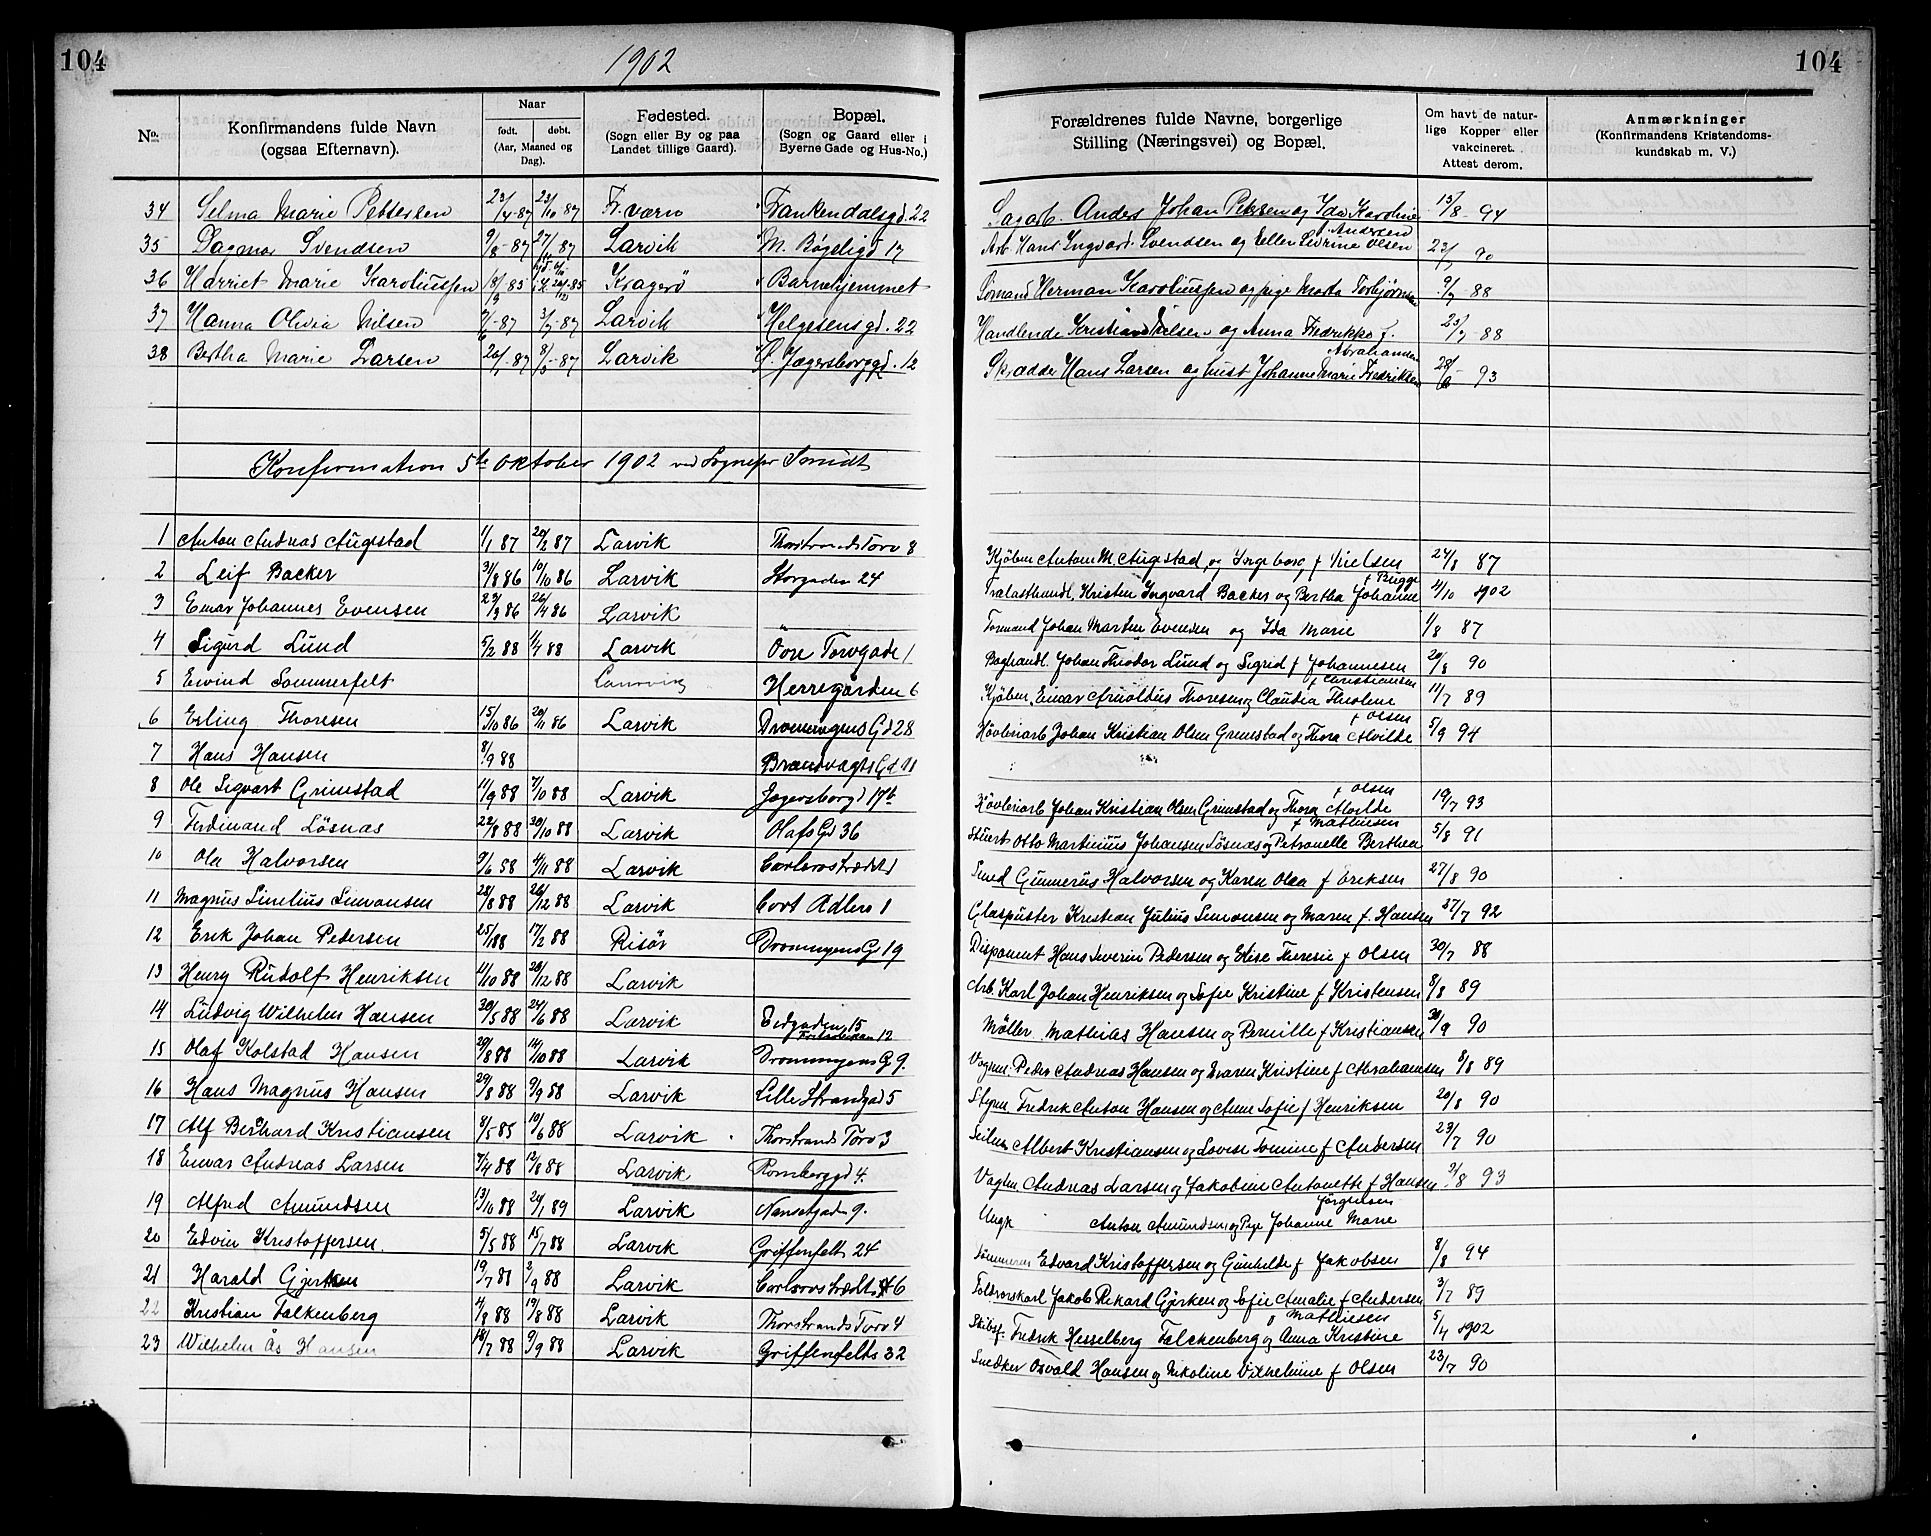 104
1902
104
No.
Konfirmandens fulde Navn
(ogsaa Efternavn).
Naar
født. døbt.
(Aar, Maaned og Dag).
Fødested.
(Sogn eller By og paa Landet tillige Gaard).
Bopæl.
(Sogn og Gaard eller i Byerne Gade og Hus-No.)
Forældrenes fulde Navne, borgerlige
Stilling (Næringsvei) og Bopæl.
Om havt de naturlige Kopper eller vakcineret. Attest derom.
Anmærkninger
(Konfirmandens Kristendomskundskab m. V.)
34 Selma Marie Pettersen 23/4-87 23/10 87 Fr. værn Frankendalsgd. 22 Sagarb. Anders Johan Petersen og Ida Karoline Andersen 15/8-94
35 Dagmar Svendsen 9/8-87 27/11 87 Larvik M. Bøgeligd 17 Arb. Hans Ingvard Svendsen og Ellen Sevrine Olsen 90
36 Harriet Marie Karoliussen 18/9 85 Kragerö Barnehjemmet Sömand Herman Karoliussen og pige Marta Torbjörnsen 9/7-88
37 Hanna Olivia Nilsen 2/6-87 3/7-87 Larvik Helgesensgd. 22 Handlende Kristian Nilsen og Anna Fredrikke f. Abrahamsen 23/7-88
38 Bertha Marie Larsen 26/1-87 8/5-87 Larvik Ø. Jægersborggd. 12 Skrædder Hans Larsen og hust Johanne Marie Fredriksen 28/6 93
Konfirmation 5te Oktober 1902 ved Sognepr Smidt
1 Anton Andreas Augestad 1/1 87 20/2 87 Larvik Thorstrands Torv 8 Kjöbm Anton M. Augestad og Ingeborg f Nielsen 24/8 87
2 Leif Backer 31/8 86 10/10 86 Larvik Storgaden 24 Trælasthandl. Kristen Ingvard Backer og Bertha Johanne f Bugge 4/10 1902
3 Einar Johannes Evensen 23/3 86 26/4 86 Larvik Tormand Johan Martin Evensen og Ida Marie 1/8 87
4 Sigurd Lund 5/2 88 1/4 88 Larvik Övre Torvgade 1 Boghandl. Johan Theodor Lund og Sigrid f Johannesen 20/8 90
5 Eivind Sommerfelt Herregården 6 Kjöbm. Einar Arnoldus Thoresen og Claudia Theoline f Christiansen 11/7 89
6 Erling Thoresen 15/10 86 20/11 86 Larvik Dronningens Gd 28 Hövleriarb Johan Kristian Olsen Grimstad og Thora Alvilde f Olsen 5/9 94
7 Hans Hansen 8/9 88 Brandvagts Gd 11
8 Ole Sigvart Grimstad 11/9 88 7/10 88 Larvik Jægersborgd 17b Hövleriarb Johan Kristian Olsen Grimstad og Thora Alvilde f Olsen 19/7 93
9 Ferdinand Lösnæs 22/8 88 30/10 88 Larvik Olafs Gd 36 Stuert Otto Martinius Johansen Lösnæs og Petronelle Berthea f Mathiesen 5/8 91
10 Ole Halvorsen 9/6 58 4/11 88 Larvik Carlsrostrædet 1 Smed Gunnerus Halvorsen og Karen Olea f Eriksen 27/8 90
11 Magnus Sinelius Simonsen 28/8 88 26/12 88 Larvik Cort Adlers 1 Glaspuster Kristian Julius Simonsen og Maren f. Hansen 27/7 92
12 Erik Johan Pedersen 25/1 88 17/2 88 Risør Dronningens Gd 19 Disponent Hans Severin Pedersen og Elise Therese f Olsen 30/7 88
13 Henry Rudolf Henriksen 11/10 88 28/12 88 Larvik Arb. Karl Johan Henriksen og Sofie Kristine f Kristensen 8/8 89
14 Ludvig Wilhelm Hansen 30/5 88 24/6 88 Larvik Eidgaden 15 Møller Mathias Hansen og Pernille f Kristiansen 30/9 90
15 Olaf Kolstad Hansen 29/8 88 14/10 88 Larvik Dronningens G 9. Vognm. Peder Andreas Hansen og Maren Kristine f Abrahamsen 8/8 89
16 Hans Magnus Hansen 29/8 88 9/9 88 Larvik Lille Strandgad 5 Styrm. Fredrik Anton Hansen og Anne Sofie f Henriksen 20/8 90
17 Alf Bernhard Kristiansen 8/5 85 10/6 88 Larvik Thorstrands Torv 3 Albert Kristiansen og Lovise Tomine f Andersen 23/7 90
18 Einar Andreas Larsen 7/4 88 12/8 88 Larvik Romberggd 4. Andreas Larsen og Jakobine Antonette f Hansen 2/8 93
19 Alfred Amundsen 13/10 88 24/1 89 Larvik Nansetgad 9. Ungk Anton Amundsen og Pige Johanne Marie Jörgensen
20 Edvin Kristoffersen. 5/5 88 15/7 88 Larvik Griffenfelts 24 Tömmerm Edvard Kristoffersen og Gunhilde f Jakobsen 8/8 94
21 Harald Gjerken 19/7 88 2/9 88 Larvik Carlsrostrædet 6 Toldvorskarl Jakob Rikard Gjerken og Sofie Amalie f Andersen 3/7 89
22 Kristian Falkenberg 4/8 88 19/8 88 Larvik Thorstrands Torv 4 Skibsf. Fredrik Hesselberg Falckenberg og Anna Kristine Mathiesen 5/4 1902
23 Wilhelm Ås Hansen 18/7 88 9/9 88 Larvik Griffenfelts 32 Snedker Osvald Hansen og Nikoline Vilhelmine f Olsen 23/7 90